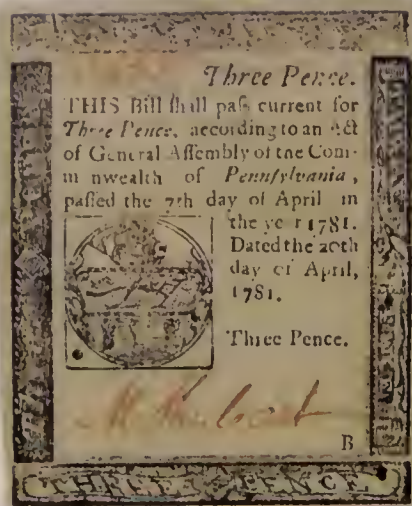 Three Pence.
THIS Bill ſhall paſs current for
Three Pence, according to an Act
of General Aſſembly of the Com-
m nwealth of Pennſylvania,
paſſed the 7th day of April in
the ye r 1781.
Dated the 20th
day of April,
1781.
Three Pence.
B
THREE PENCE